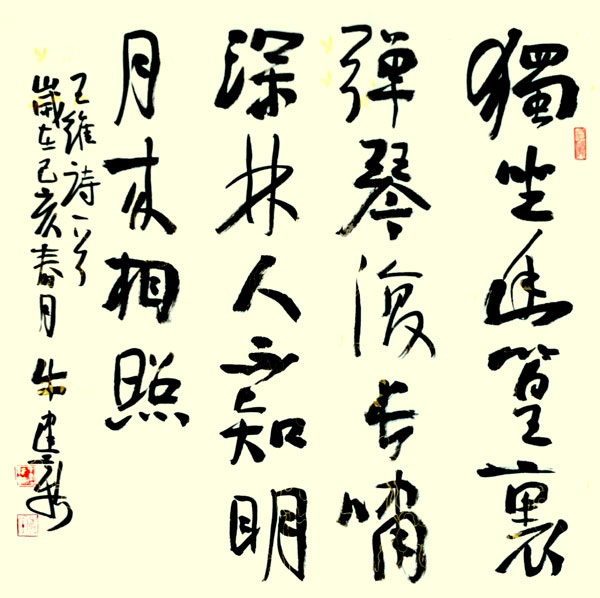 獨坐幽篁裏
彈琴復长嘯
深林人不知明
月来相照
王維詩一首
歲在己亥春月 朱建